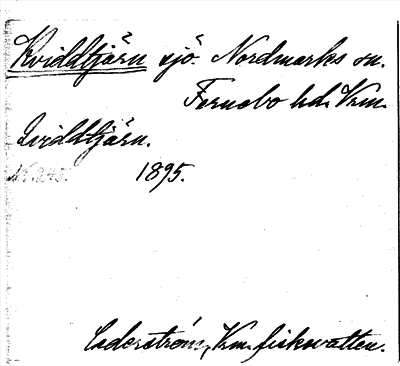 Kviddtjärn sjö. Nordmarks sn.
Fernebo hd. Vrm.
Qviddtjärn.
N. 245. 1895.
Cederström, Vrm. fiskvatten.